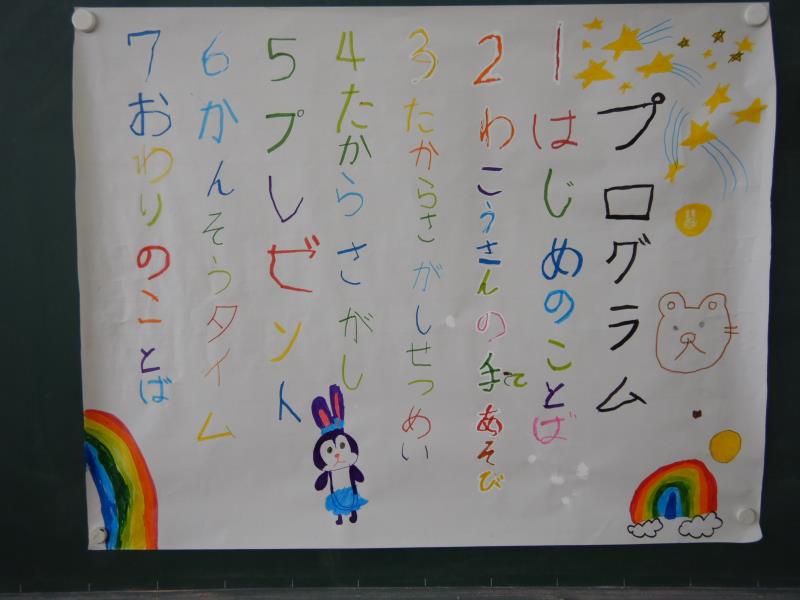 プログラム
1 はじめのことば
2 わこうさんの手あそび
て
3 たからさがしせつめい
4 たからさがし
5 プレゼント
6 かんそうタイム
7 おわりのことば